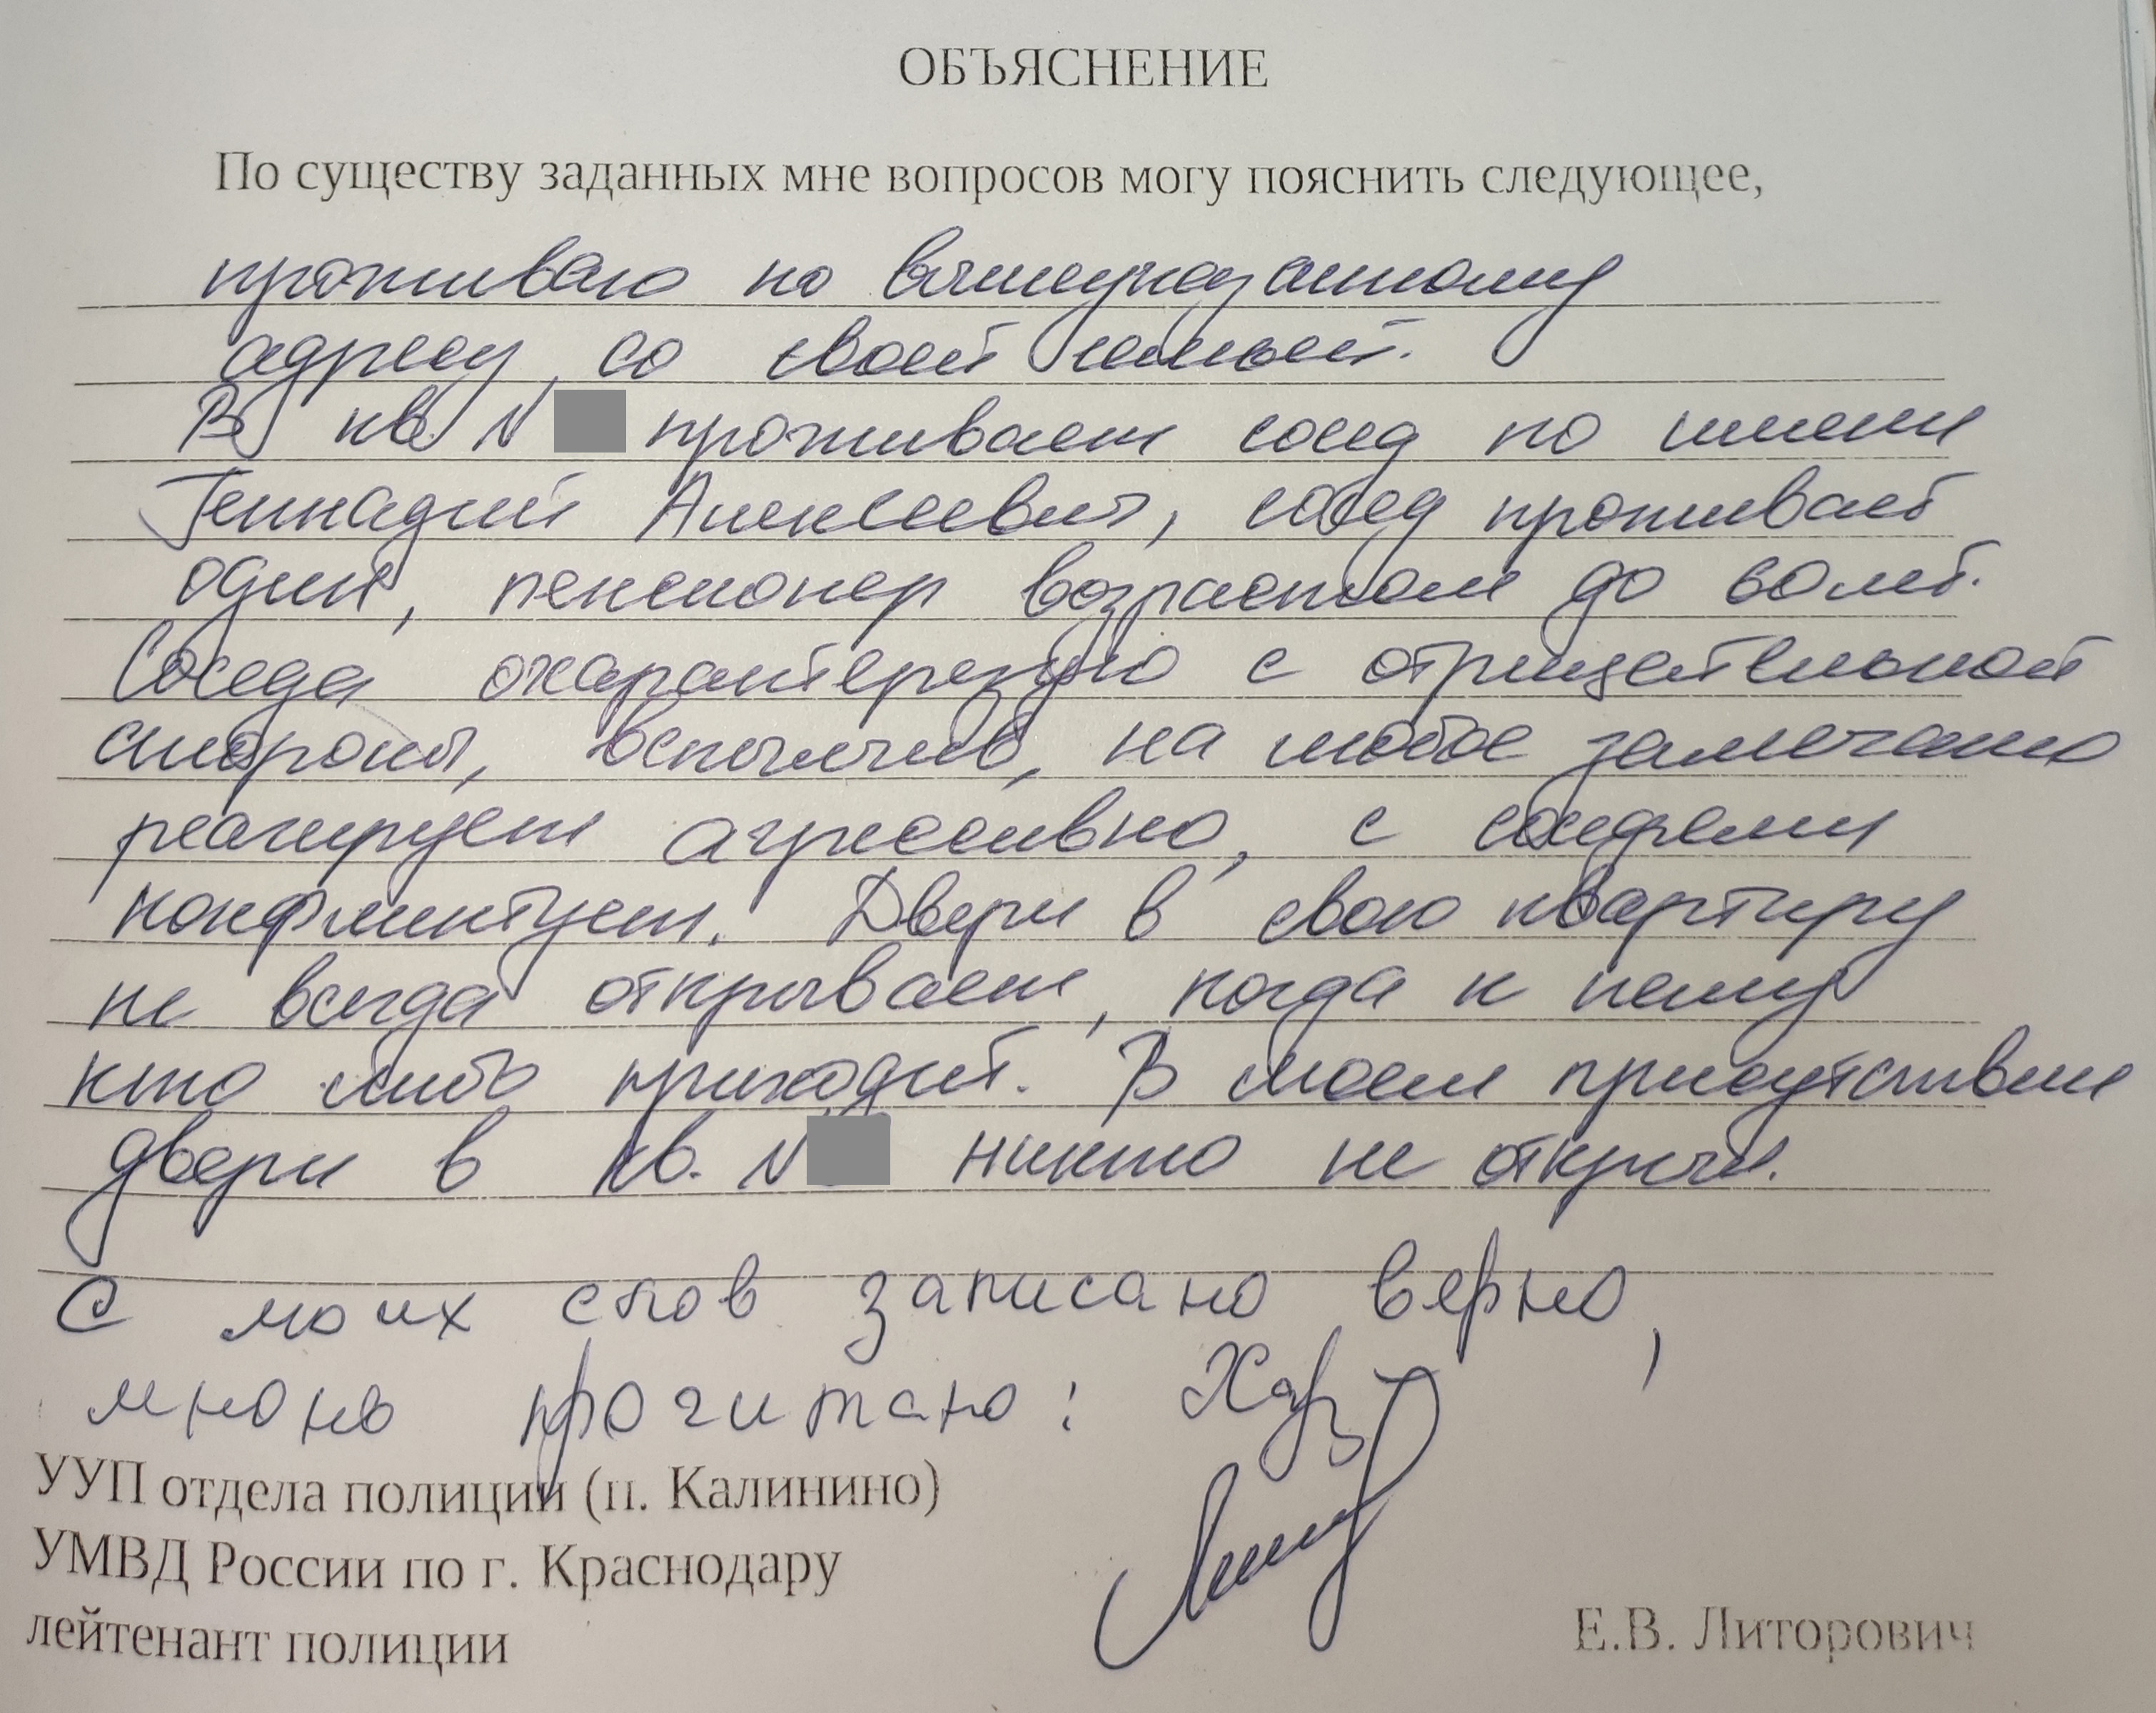 ОБЪЯСНЕНИЕ
По существу заданных мне вопросов могу пояснить следующее,
проживаю по вышеуказанному
адресу, со своей семьей.
В кв. N проживает сосед по имени
Геннадий Алексеевич, сосед проживает
один, пенсионер возрастом до 60 лет.
Соседа охарактерезую с отрицательной
стороны, вспыльчив, на любое замечание
реагирует агрессивно, с соседями
конфликтует. Двери в свою квартиру
не всегда открывает, когда к нему
кто либо приходит. В моем присутствии
двери в кв. N никто не открыл.
С моих слов записано верно,
мною прочитано:
УУП отдела полиции (п. Калинино)
УМВД России по г. Краснодару
лейтенант полиции
Е.В. Литорович